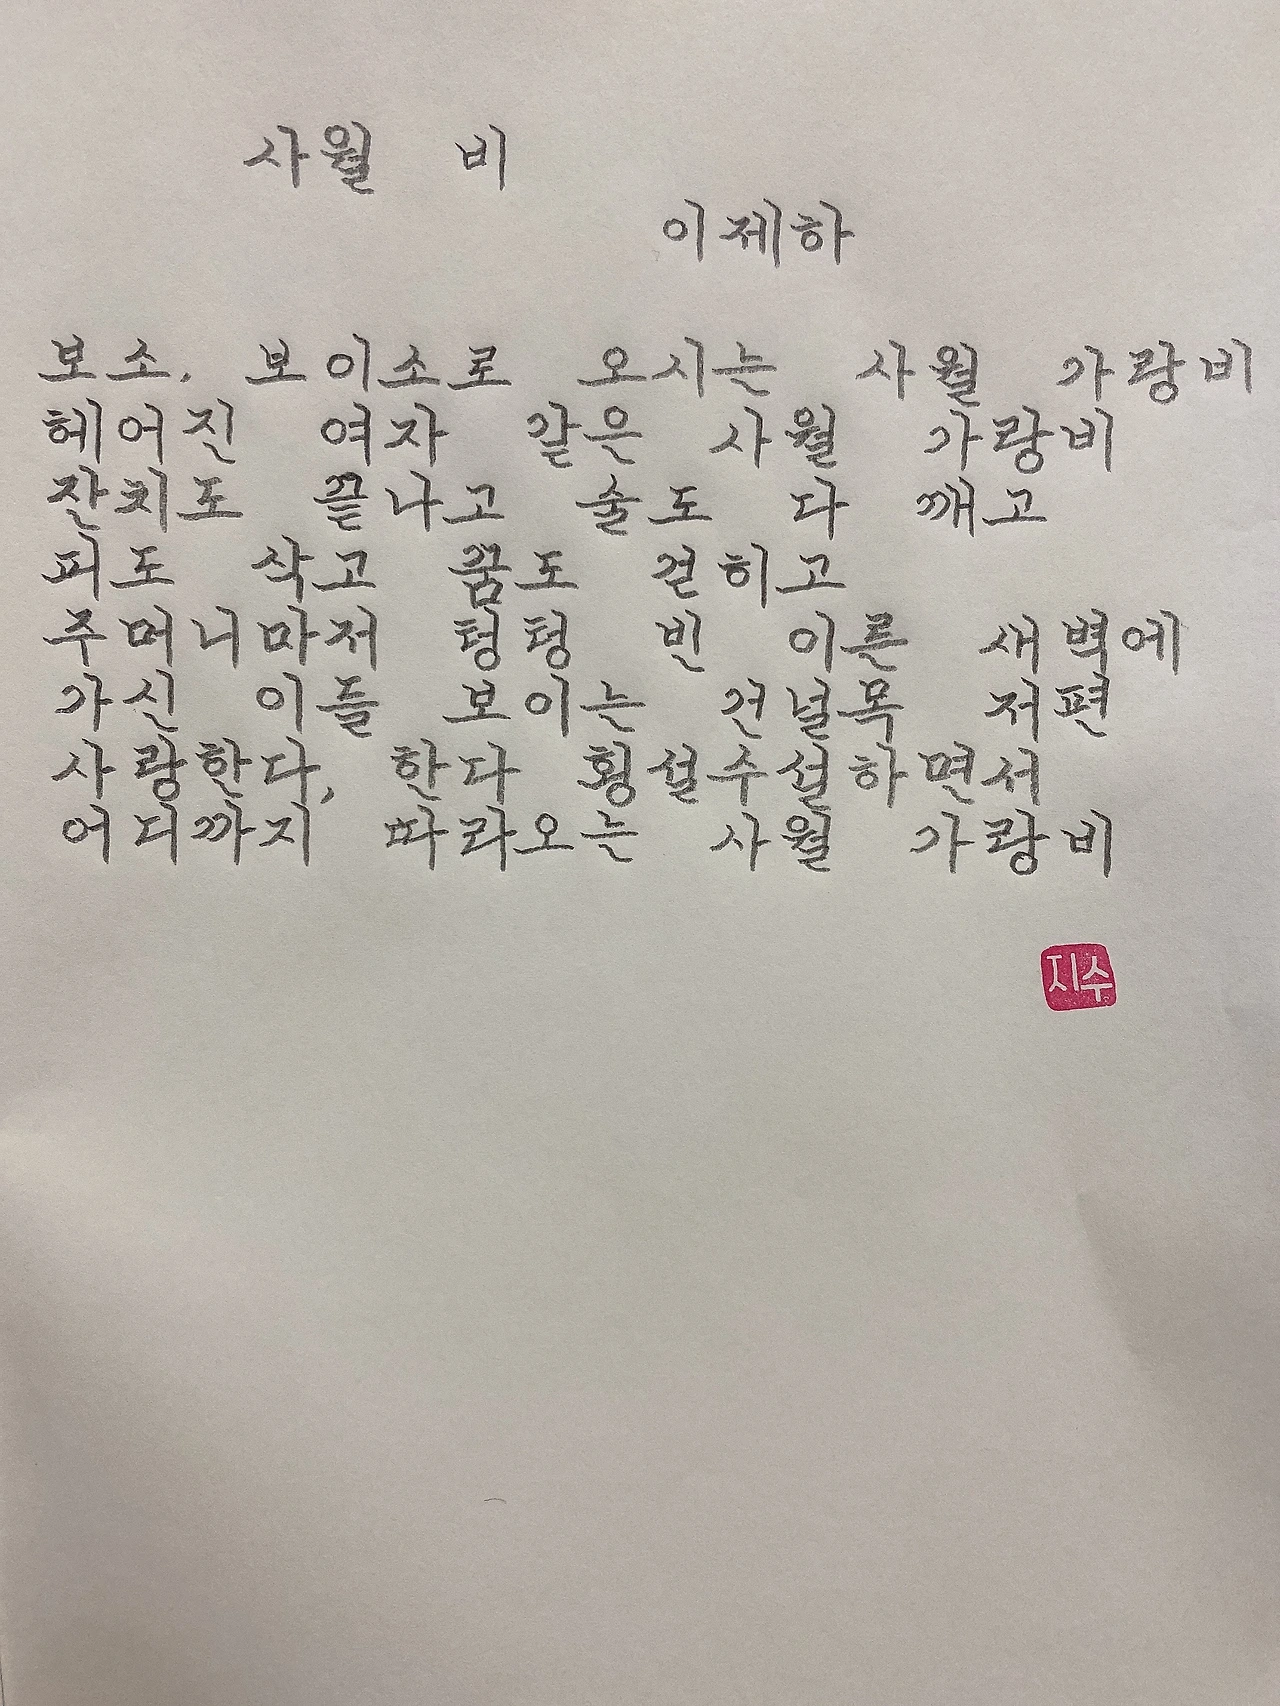 사월 비
이제하
보소, 보이소로 오시는 사월 가랑비
헤어진 여자 같은 사월 가랑비
잔치도 끝나고 술도 다 깨고
피도 삭고 꿈도 걷히고
주머니마저 텅텅 빈 이른 새벽에
가신 이들 보이는 건널목 저편
사랑한다, 한다 횡설수설하면서
어디까지 따라오는 사월 가랑비
지수